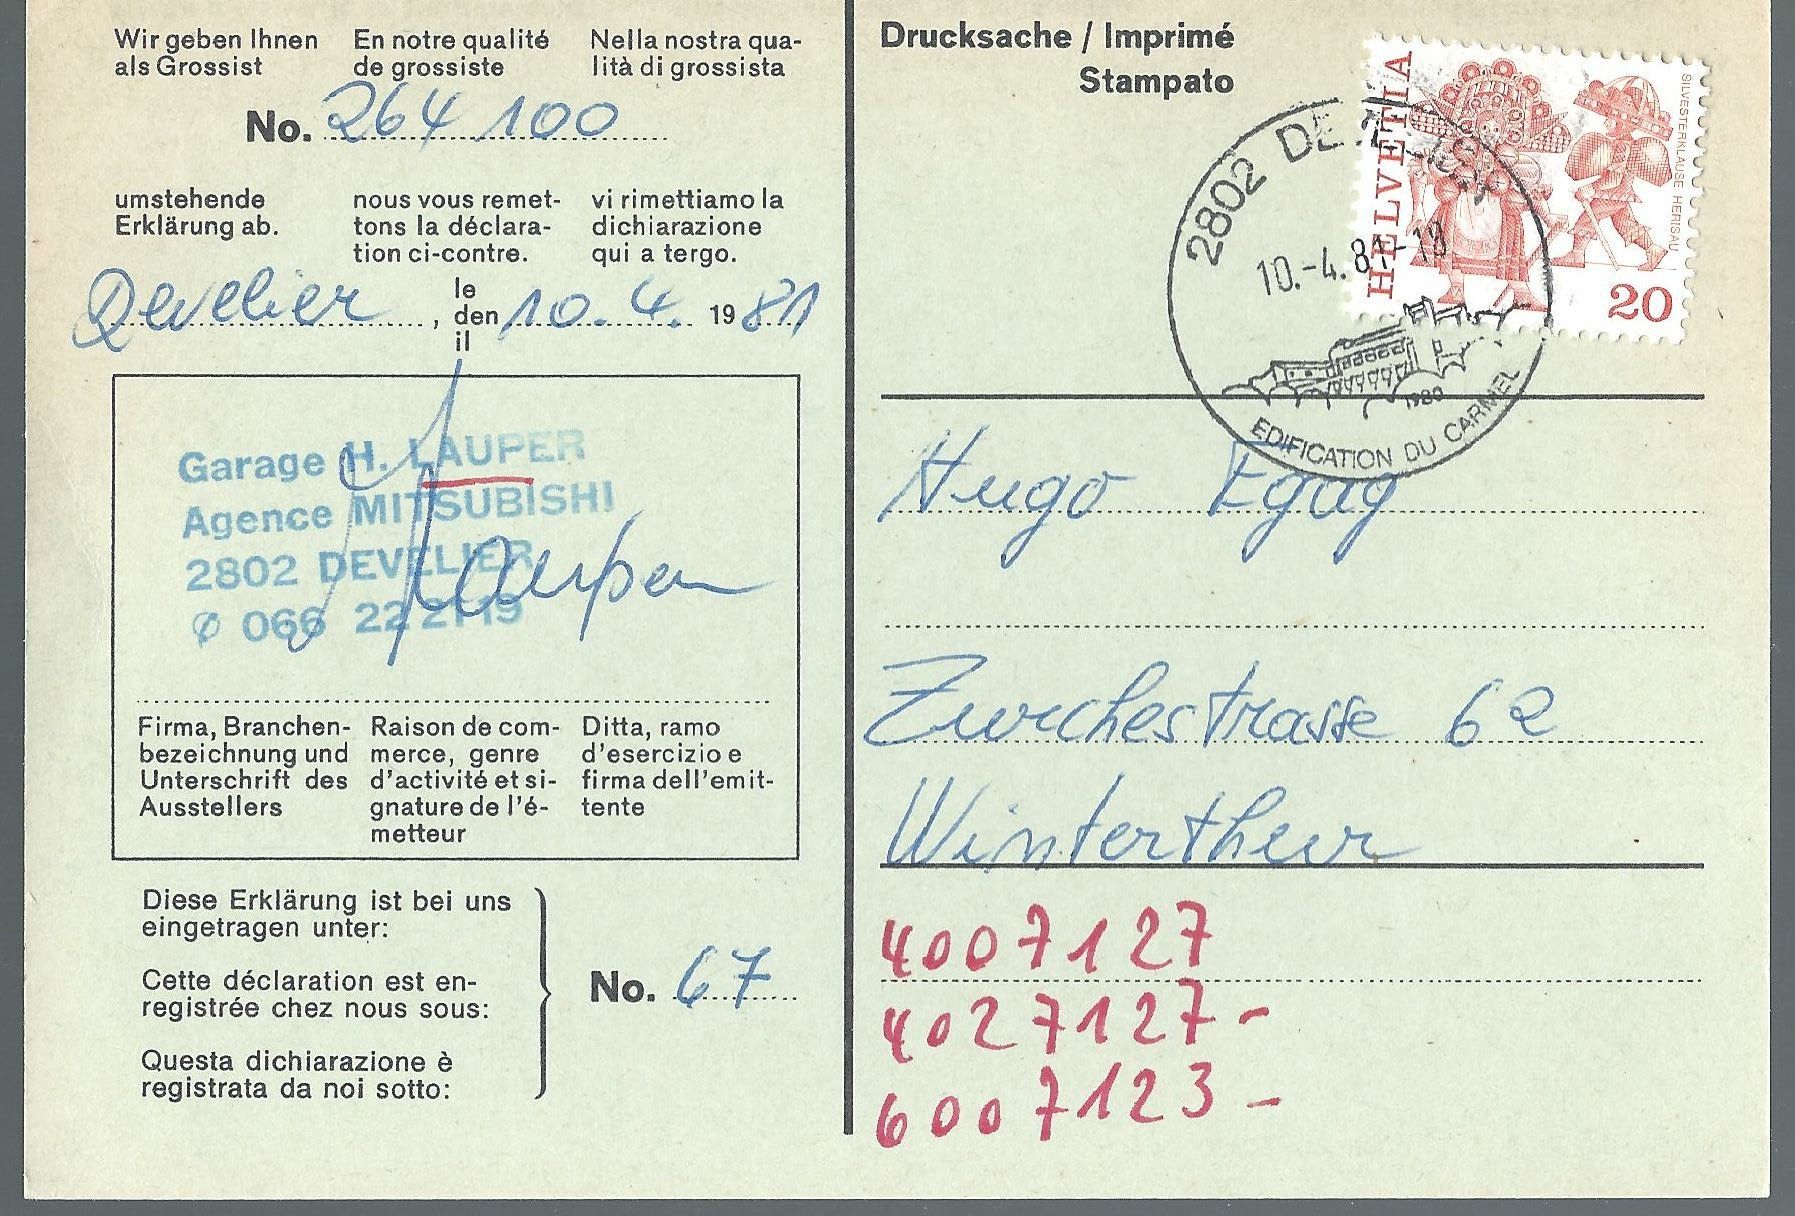 Wir geben Ihnen
als Grossist
En notre qualité
de grossiste
Nella nostra qua-
lità di grossista
No. 264 100
umstehende
Erklärung ab.
nous vous remet-
tons la déclara-
tion ci-contre.
vi rimettiamo la
dichiarazione
qui a tergo.
Develier, le
den 10. 4. 1981
il
Garage H. LAUPER
Agence MITSUBISHI
2802 DEVELIER
066 22 21 19
Lauper
Firma, Branchen-
bezeichnung und
Unterschrift des
Ausstellers
Raison de com-
merce, genre
d'activité et si-
gnature de l'é-
metteur
Ditta, ramo
d'esercizio e
firma dell'emit-
tente
Diese Erklärung ist bei uns
eingetragen unter:
Cette déclaration est en-
registrée chez nous sous:
Questa dichiarazione è
registrata da noi sotto:
No. 67
Drucksache / Imprimé
Stampato
HELVETIA
SILVESTERKLÄUSE HERISAU
20
2802 DEVELIER
10.-4.81-18
1980
EDIFICATION DU CARMEL
Hugo Egag
Zurchestrasse 62
Winterthur
4007127
4027127-
6007123-